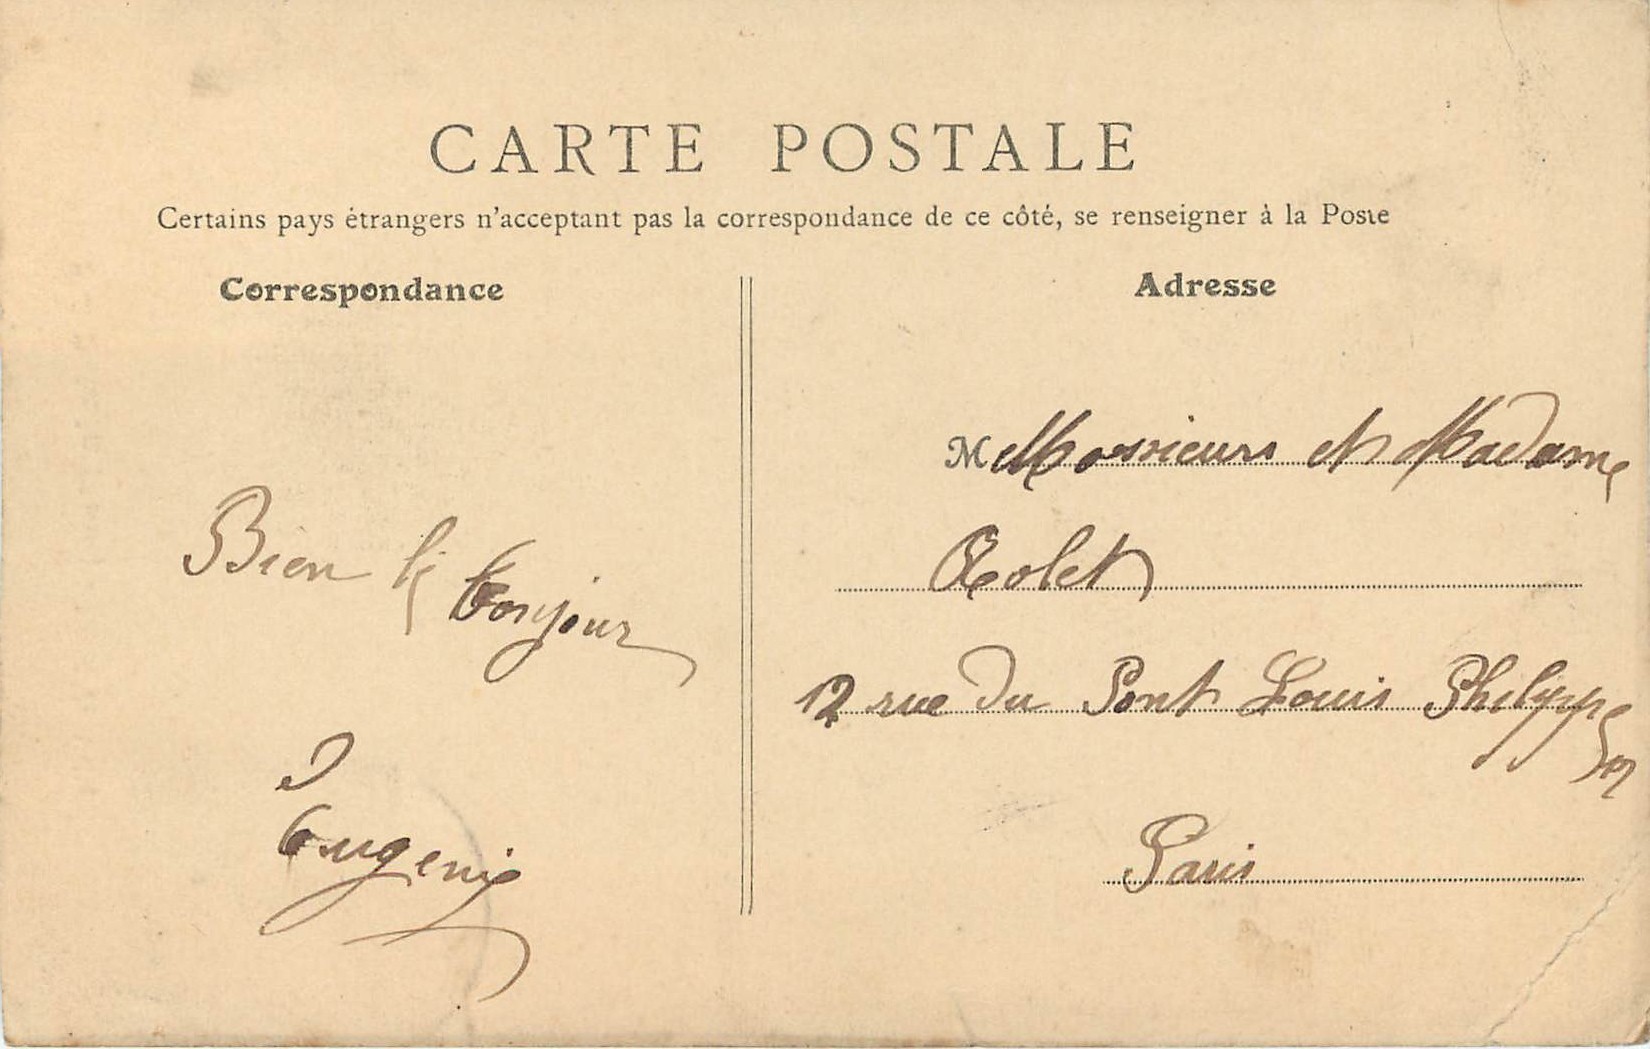 CARTE POSTALE
Certains pays étrangers n'acceptant pas la correspondance de ce côté, se renseigner à la Poste
Correspondance
Adresse
Bien le bonjour
Eugenie
M Monsieurs et Madame
Rolet
12 rue du Pont Louis Philippe
Paris